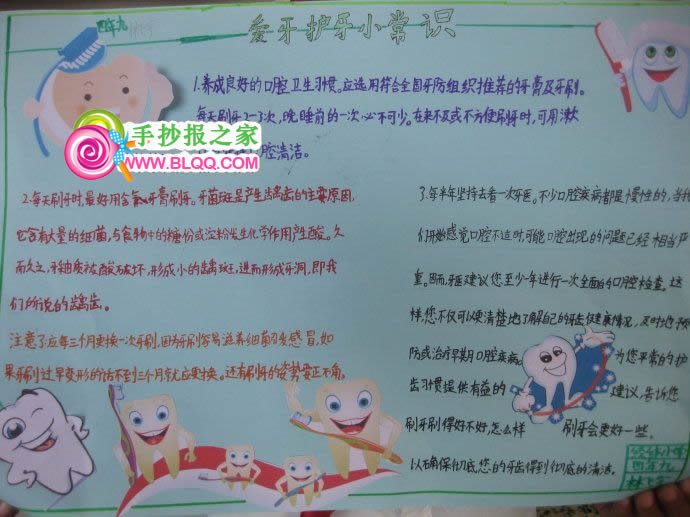 爱牙护牙小常识
四年九
1.养成良好的口腔卫生习惯。应选用符合全国牙防组织推荐的牙膏及牙刷。
每天刷牙2-3次,晚睡前的一次必不可少。在来不及或不方便刷牙时,可用漱
腔清洁。
手抄报之家
WWW.BLQQ.COM
2.每天刷牙时,最好用含氟牙膏刷牙。牙菌斑是产生龋齿的主要原因,
它含有大量的细菌,与食物中的糖份或淀粉发生化学作用产生酸。久
而久之,牙釉质被酸破坏,形成小的龋斑,进而形成牙洞,即我
们所说的龋齿。
注意了应每三个月更换一次牙刷,因为牙刷容易滋养细菌引发感冒,如
果牙刷过早变形的话不到三个月就应更换。还有刷牙的姿势要正确。
3.每半年坚持去看一次牙医。不少口腔疾病都是慢性的,当我
们开始感觉口腔不适时,可能口腔出现的问题已经相当严
重。因而,牙医建议您至少年进行一次全面的口腔检查。这
样,您不仅可以更清楚地了解自己的牙齿健康情况,及时
防或治疗早期口腔疾病。为您平常的护
齿习惯提供有益的建议,告诉您
刷牙刷得好不好,怎么样刷牙会更好一些。
以确保彻底,您的牙齿得到彻底的清洁。
四年九